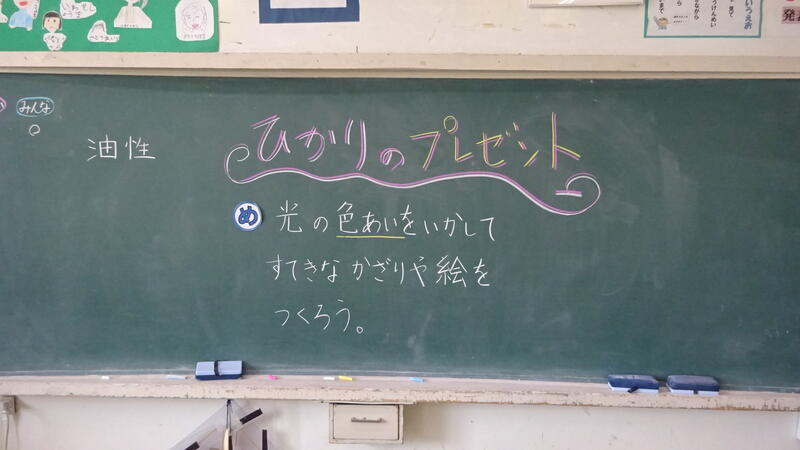 みんな
油性
ひかりのプレゼント
め 光の色あいをいかして
すてきなかざりや絵を
つくろう。